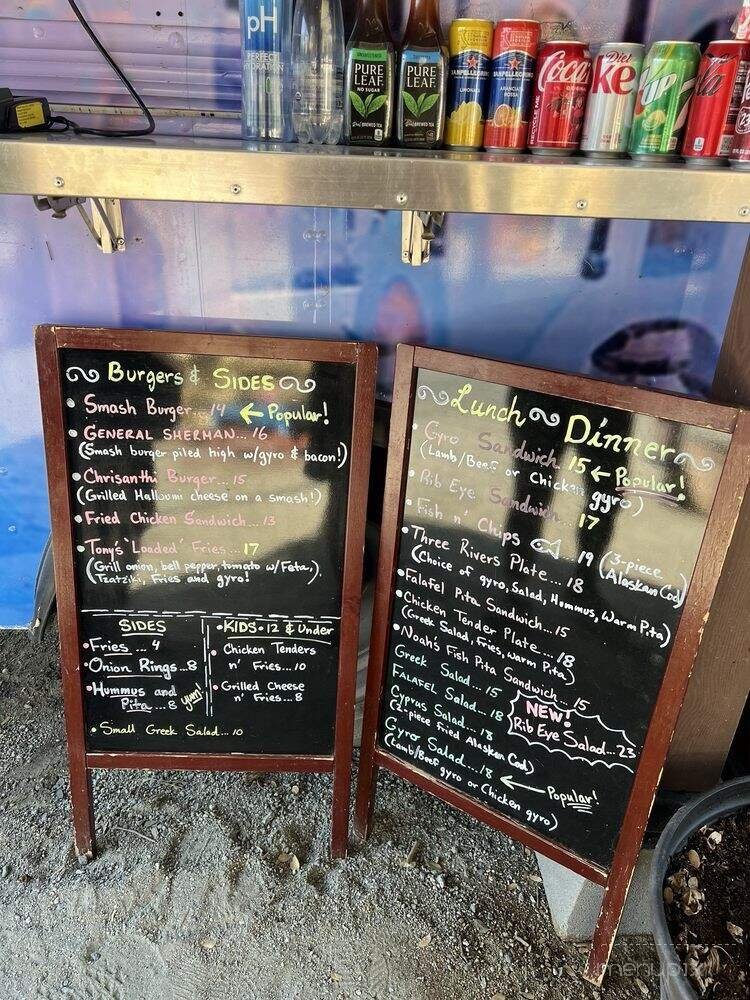 pH
PERFECT
HYDRATION
UNSWEETENED
PURE
LEAF
NO SUGAR
Real BREWED TEA
PURE
LEAF
Real BREWED TEA
SANPELLEGRINO
LIMONATA
SANPELLEGRINO
ARANCIATA
ROSSA
Coca
RECYCLE ME
Diet
Ke
7UP
Burgers & SIDES
• Smash Burger... 14 ← Popular!
• GENERAL SHERMAN... 16
(Smash burger piled high w/gyro & bacon!)
• Chrisanthi Burger... 15
(Grilled Halloumi cheese on a smash!)
• Fried Chicken Sandwich... 13
• Tony's 'Loaded' Fries... 17
(Grill onion, bell pepper, tomato w/Feta,
Tzatziki, Fries and gyro!)
SIDES
• Fries... 4
• Onion Rings... 8
• Hummus and
Pita... 8 yum!
• Small Greek Salad... 10
• KIDS • 12 & Under
• Chicken Tenders
n' Fries... 10
• Grilled Cheese
n' Fries... 8
Lunch Dinner
• Gyro Sandwich 15 ← Popular!
(Lamb/Beef or Chicken gyro)
• Rib Eye Sandwich... 17
• Fish n' Chips ... 19 (3-piece
Alaskan Cod)
• Three Rivers Plate... 18
(Choice of gyro, Salad, Hummus, Warm Pita)
• Falafel Pita Sandwich... 15
• Chicken Tender Plate... 18
(Greek Salad, Fries, warm Pita)
• Noah's Fish Pita Sandwich... 15
Greek Salad... 15
FALAFEL Salad... 18
Cyprus Salad... 18
(2-piece fried Alaskan Cod)
Gyro Salad... 18 ← Popular!
(Lamb/Beef gyro or Chicken gyro)
NEW!
Rib Eye Salad... 23
menupix